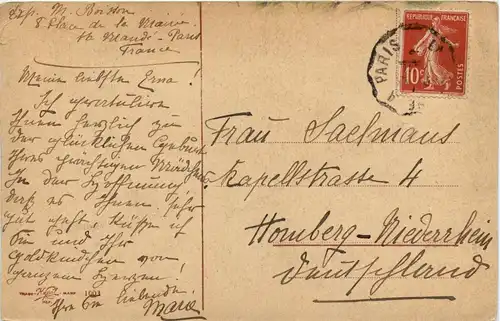 Exp. M. Boisson
8 Place de la Mairie
St Mandé - Paris
France
Meine liebste Erna!
Ich gratuliere
Ihnen herzlich zu
der glücklichen Geburt
Ihres herzigen Mädchens.
In der Hoffnung,
daß es Ihnen sehr
gut geht, küsse ich
Sie und Ihr
Goldkindchen von
ganzem Herzen!
Ihre Sie liebende
REPUBLIQUE FRANÇAISE
10c
POSTES
PARIS
Frau Saelmans
Kapellstrasse 4
Homberg-Niederrhein
Deutschland